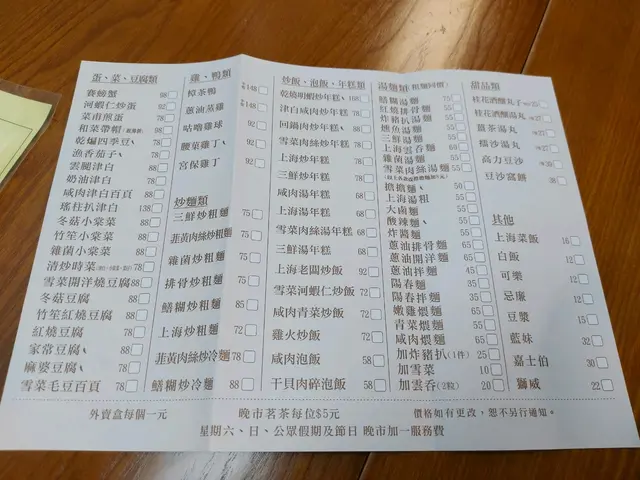 蛋、菜、豆腐類
賽螃蟹 88
河蝦仁炒蛋 92
菜甫煎蛋 78
和菜帶帽 98
乾煸四季豆 78
漁香茄子 78
雲腿津白 88
奶油津白 78
咸肉津白百頁 88
瑤柱扒津白 138
冬菇小棠菜 88
竹笙小棠菜 88
雜菌小棠菜 88
清炒時菜 78
雪菜開洋燒豆腐 88
冬菇豆腐 88
竹笙紅燒豆腐 88
紅燒豆腐 78
家常豆腐 88
麻婆豆腐 78
雪菜毛豆百頁 78
雞、鴨類
樟茶鴨 148
蔥油蒸雞 92
咕嚕雞球 92
腰菜雞丁 92
宮保雞丁 92
炒麵類
三鮮炒粗麵 75
菲黃肉絲炒粗麵 75
雜菌炒粗麵 75
排骨炒粗麵 75
鱔糊炒粗麵 85
上海炒粗麵 72
菲黃肉絲炒冷麵 78
鱔糊炒冷麵 88
炒飯、泡飯、年糕類
乾燒明蝦炒年糕 168
津白咸肉炒年糕 88
回鍋肉炒年糕 88
雪菜肉絲炒年糕 78
上海炒年糕 78
三鮮炒年糕 78
咸肉湯年糕 88
上海湯年糕 88
雪菜肉絲湯年糕 68
三鮮湯年糕 68
上海老闆炒飯 92
雪菜河蝦仁炒飯 72
咸肉青菜炒飯 72
雞火炒飯 72
咸肉泡飯 58
干貝肉碎泡飯 58
湯麵類(粗麵同價)
鱔糊湯麵 75
紅燒排骨麵 55
炸豬扒湯麵 55
燻魚湯麵 55
三鮮湯麵 55
上海雲吞麵 60
雜菌湯麵 55
雪菜肉絲湯麵 55
擔擔麵 50
上海湯粗 55
大鹵麵 55
酸辣麵 55
炸醬麵 55
蔥油排骨麵 65
蔥油開洋麵 60
蔥油拌麵 45
陽春麵 35
陽春拌麵 35
嫩雞煨麵 68
青菜煨麵 55
咸肉煨麵 68
加炸豬扒(1件) 25
加雪菜 10
加雲吞(2粒) 20
甜品類
桂花酒釀丸 25
桂花酒釀湯丸 27
薑茶湯丸 27
擂沙湯丸 27
高力豆沙 30
豆沙窩餅
其他
上海菜飯 16
白飯 12
可樂 12
忌廉 12
豆漿 15
藍妹 32
嘉士伯 30
獅威 22
外賣盒每個一元 晚市茗茶每位$5元 價格如有更改，恕不另行通知。
星期六、日、公眾假期及節日 晚市加一服務費